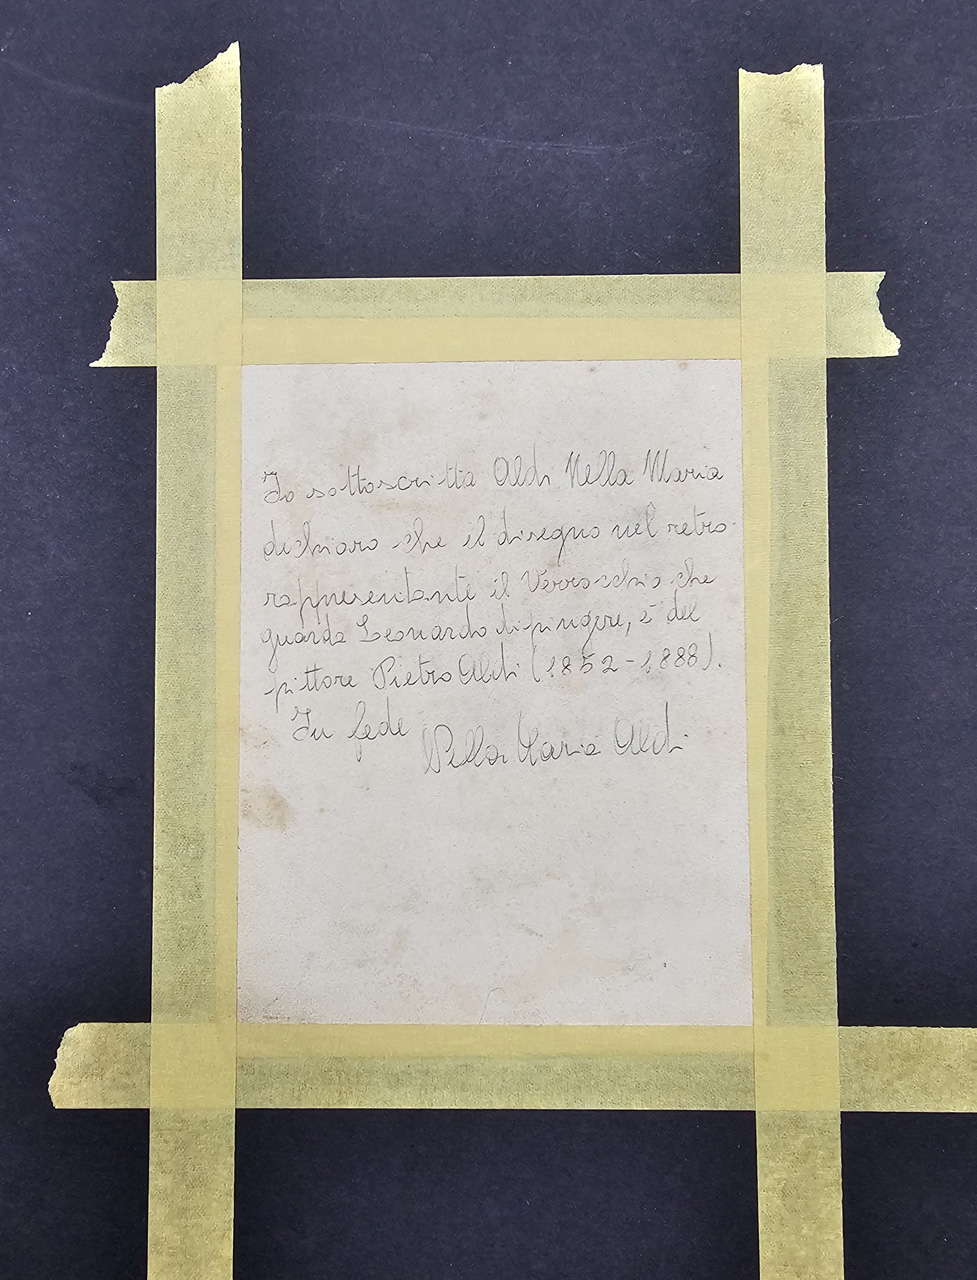 Io sottoscritta Aldi Nella Maria
dichiaro che il disegno nel retro
rappresentante il Verrocchio che
guarda Leonardo dipingere, è del
pittore Pietro Aldi (1852-1888).
In fede
Nella Maria Aldi